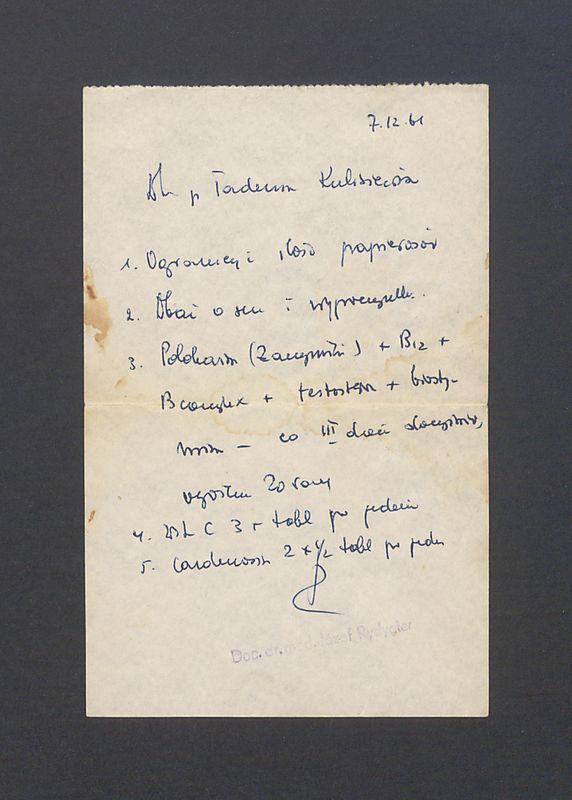 7.12.61
Dla p Tadeusza Kulisiewicza
1. Ograniczyć ilość papierosów
2. Dbać o sen i wypoczynek.
3. (Zastrzyki) + B12 +
B complex + testosteron + biosty-
min — co III dzień domięśniowo,
wszystko 20 razy
4. Vit C 3 x tabl po jedzeniu
5. 2 x 1/2 tabl po jedz
Doc. dr. med. Józef Rydygier